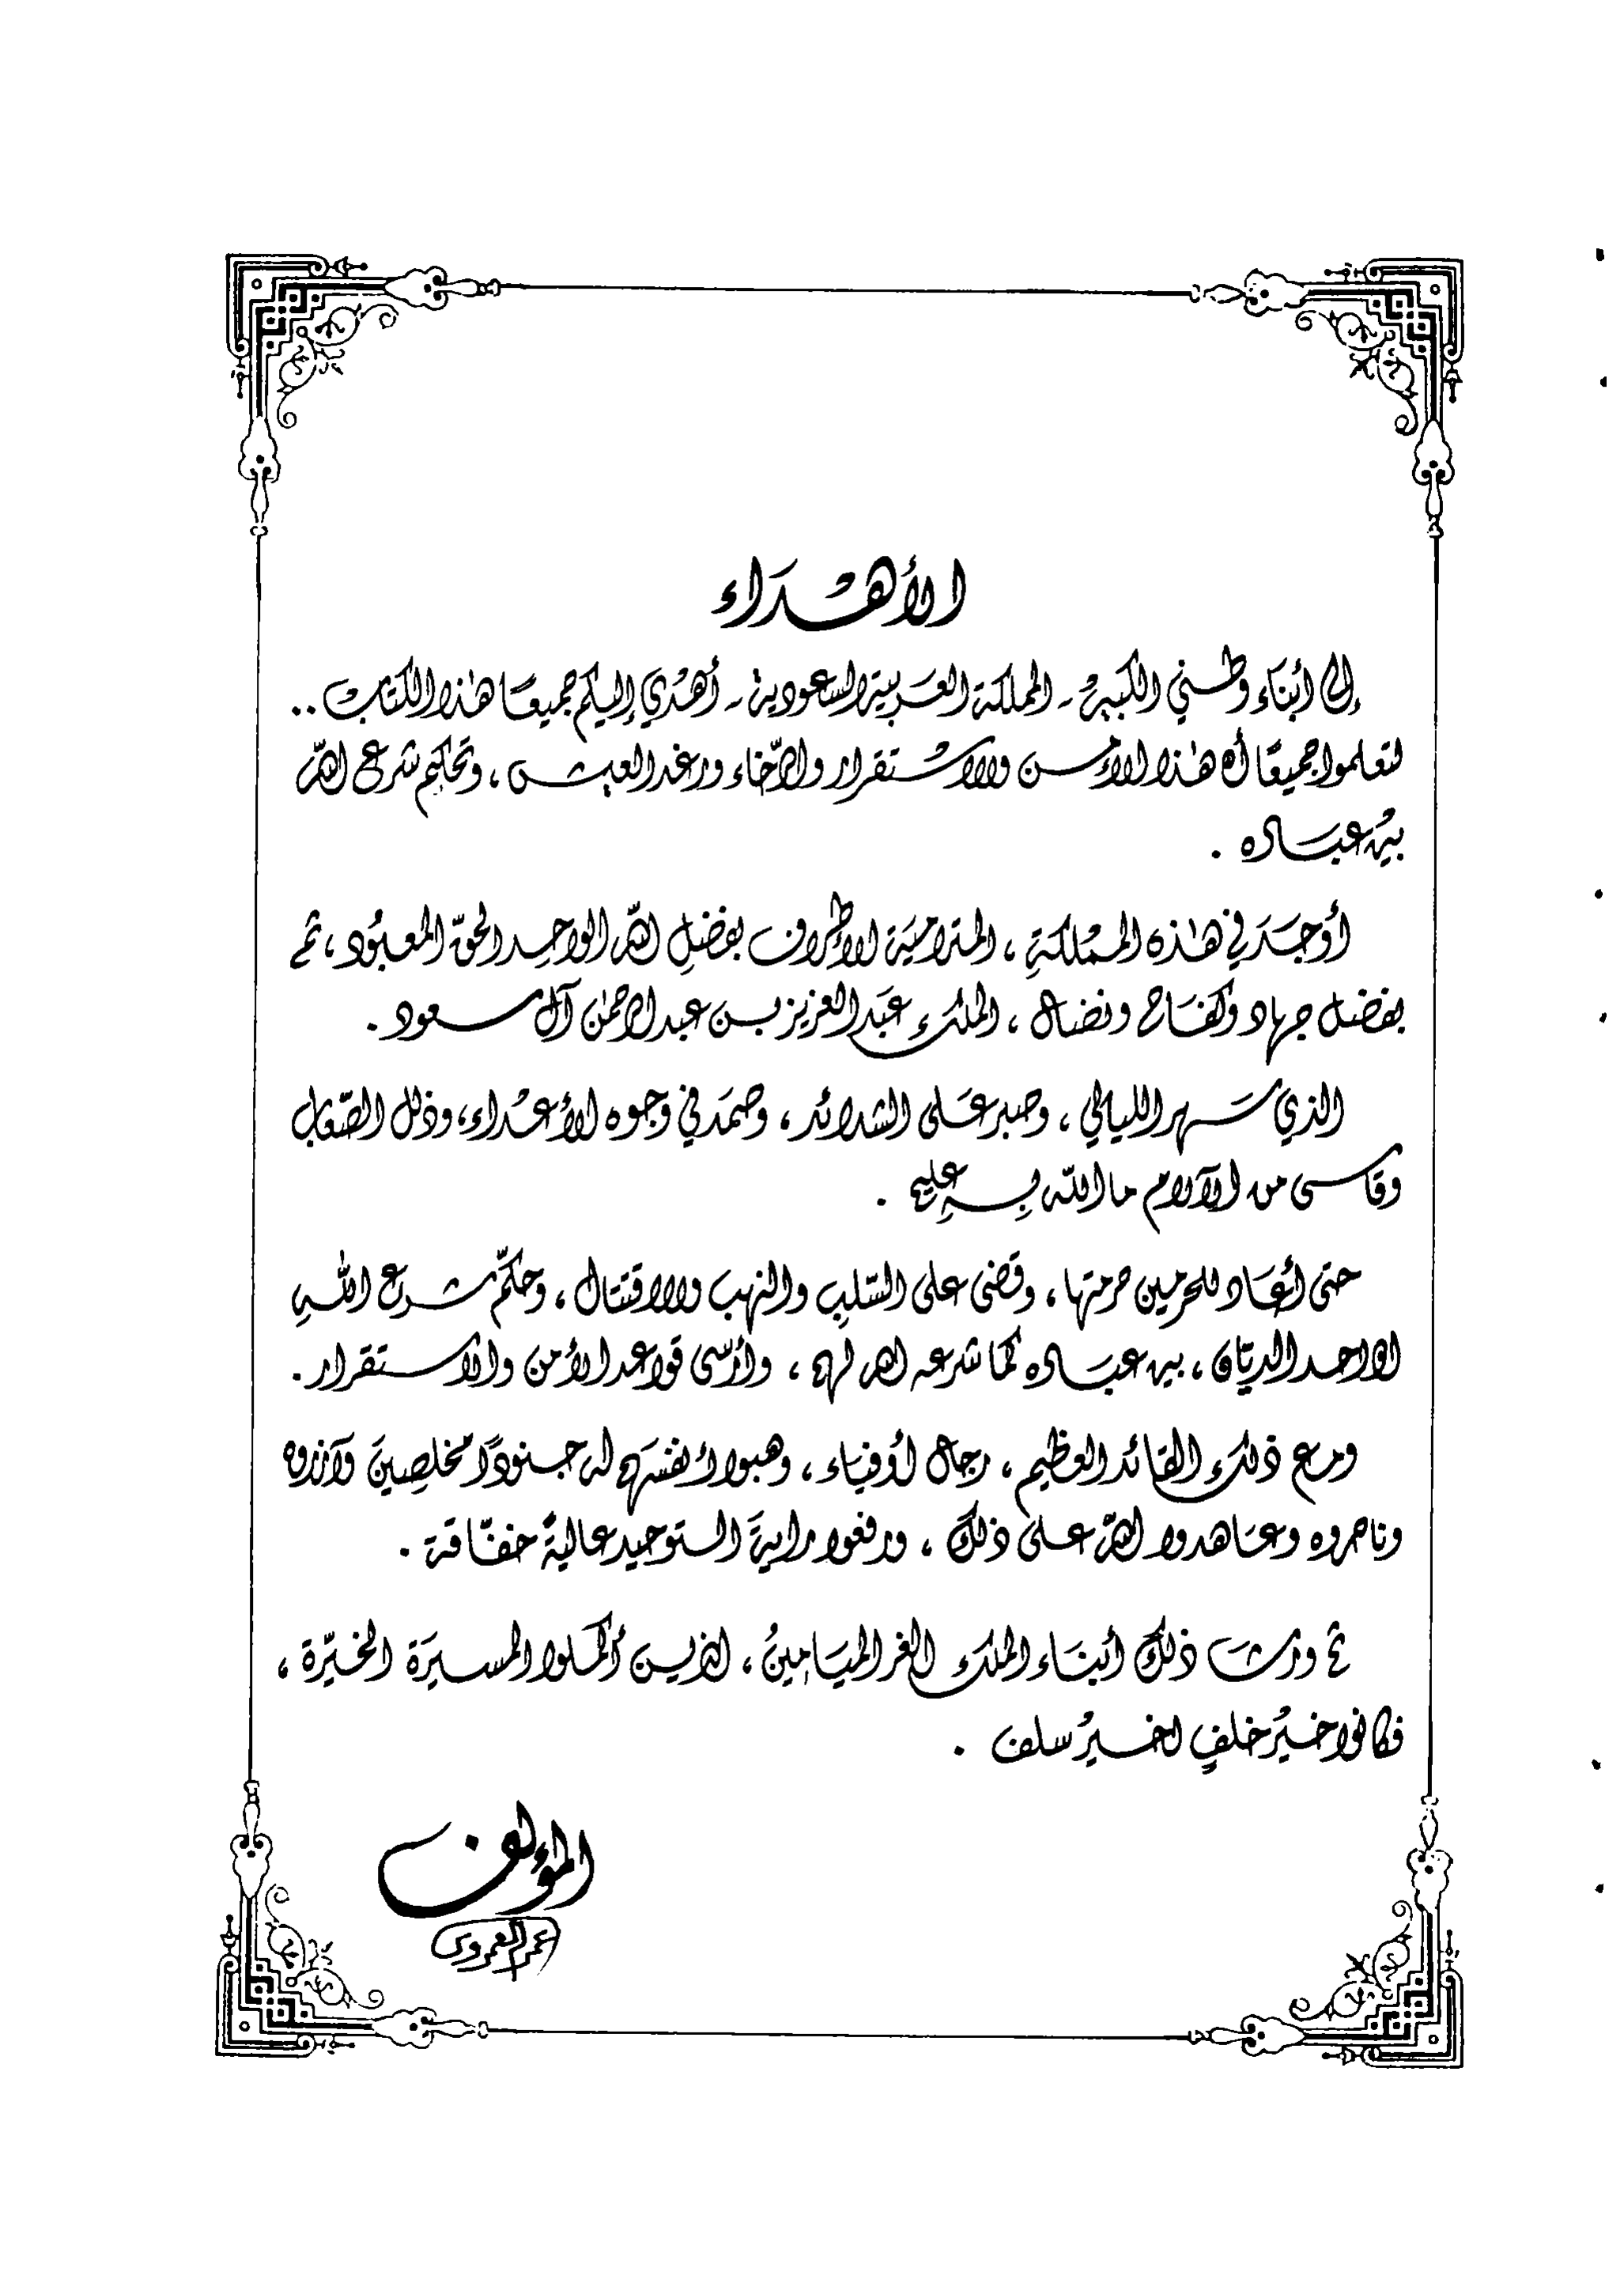 الأهْدَاء
إلى أبناء وطني الكبير - المملكة العَربية السعودية - أهْدي إليكم جميعًا هٰذا الكتاب ..
لتعلموا جميعًا أن هٰذا الأمن والاستقرار والرّخاء ورغد العيش ، وتحكيم شرع الله
بين عبَاده .
أوجَدَ في هٰذه الممْلكةِ ، المترامية الأطراف بفضلِ الله الواحِد الحقّ المعبُود ، ثم
بفضل جهاد وكفاح ونضال ، الملك عبَد العزيز بن عبد الرحمٰن آل سعود .
الذي سَهر الليالي ، وصبر عَلى الشدائد ، وصمَد في وجوه الأعْداء ، وذلل الصّعاب
وقاسى من الآلام ما الله بِهِ عليم .
حتى أعَاد للحرمين حرمتها ، وقضى على السّلبِ والنهب والاقتتال ، وحكّم شرع اللهِ
الواحد الديّان ، بين عبَاده كما شرعه الله لهم ، وأرْسى قواعد الأمن والاستقرار .
ومع ذلك القائد العظيم ، رجال أوفياء ، وهبوا أنفسَهم له جنودًا مخلصِينَ وآزروه
وناصروه وعَاهدوا الله على ذلك ، ورفعوا رايةَ التوحيد عاليةً خفّاقة .
ثم ورث ذلك أبنَاء الملك الغر الميَامِينُ ، الذين أكملوا المسيرَة الخيّرة ،
فكانوا خيرُ خلفٍ لخيرُ سلف .
المؤلف
عمر العمروي